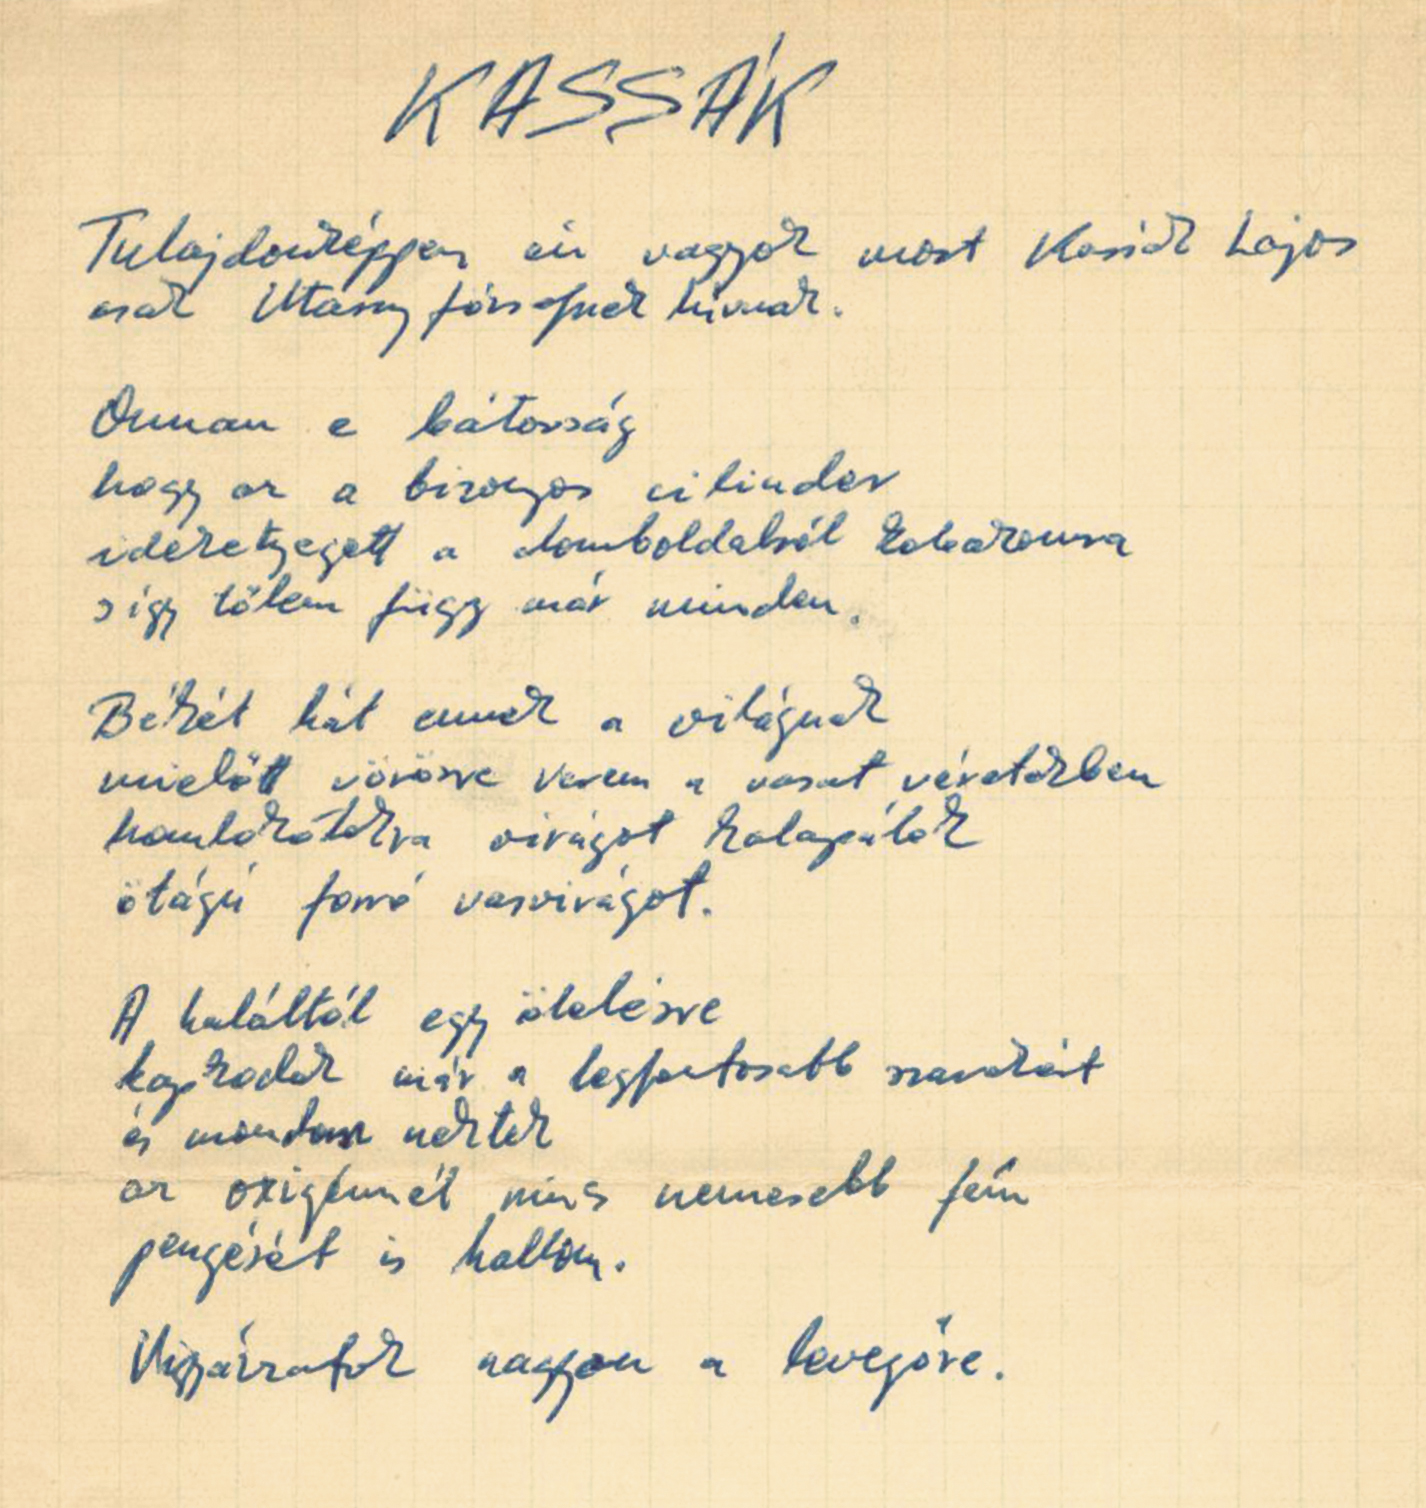 KASSÁK
Tulajdonképpen én vagyok most Kassák Lajos
csak Utassy Józsefnek hívnak.
Onnan e bátorság
hogy az a bizonyos cilinder
ideketyegett a domboldalból kobakomra
s így tőlem függ már minden.
Békét hát ennek a világnak
mielőtt vörösre verem a vasat véretekben
homlokotokra virágot kalapálok
ötágú forró vasvirágot.
A haláltól egy ölelésre
kapkodok már a legfontosabb szavakért
és mondom nektek
az oxigénnél nincs nemesebb fém
pengését is hallom.
Vigyázzatok nagyon a levegőre.